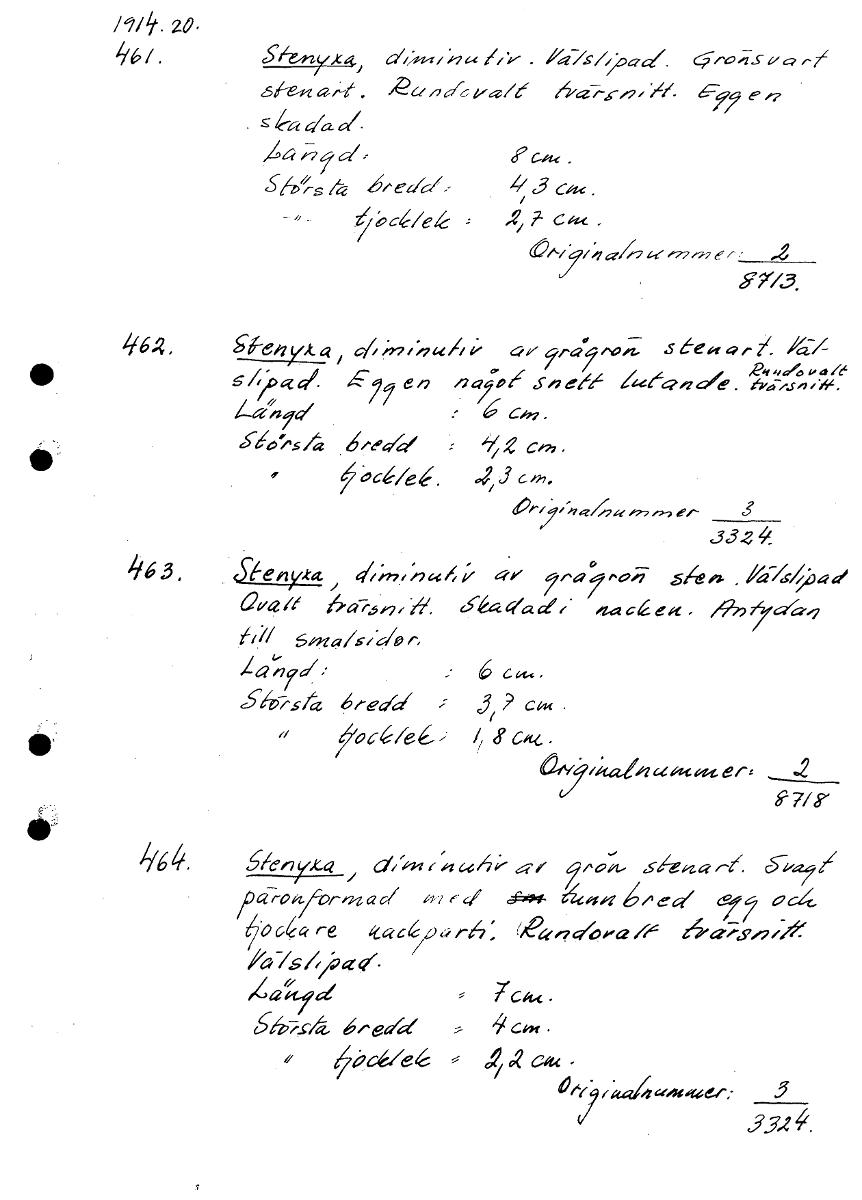 1914.20.
461. Stenyxa, diminutiv. Välslipad. Grönsvart
stenart. Rundovalt tvärsnitt. Eggen
skadad.
Längd: 8 cm.
Största bredd: 4,3 cm.
-"- tjocklek: 2,7 cm.
Originalnummer: 2
8713.
462. Stenyxa, diminutiv av grågrön stenart. Väl-
slipad. Eggen något snett lutande. Rundovalt
tvärsnitt.
Längd : 6 cm.
Största bredd : 4,2 cm.
" tjocklek. 2,3 cm.
Originalnummer 3
3324.
463. Stenyxa, diminutiv av grågrön sten. Välslipad
Ovalt tvärsnitt. Skadad i nacken. Antydan
till smalsidor.
Längd: : 6 cm.
Största bredd : 3,7 cm.
" tjocklek: 1,8 cm.
Originalnummer: 2
8718
464. Stenyxa, diminutiv av grön stenart. Svagt
päronformad med sm tunn bred egg och
tjockare nackparti. Rundovalt tvärsnitt.
Välslipad.
Längd : 7 cm.
Största bredd : 4 cm.
" tjocklek : 2,2 cm.
Originalnummer: 3
3324.